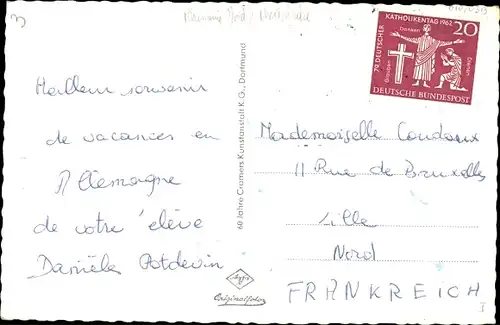 Meilleur souvenir
de vacances en
Allemagne
de votre élève
Danièle Potdevin
60 Jahre Cramers Kunstanstalt K.G., Dortmund
Agfa
Originalfoto
79. DEUTSCHER
KATHOLIKENTAG 1962
20
Danken
Glauben
Dienen
DEUTSCHE BUNDESPOST
Mademoiselle
11 Rue de Bruxelles
Lille
Nord
FRANKREICH